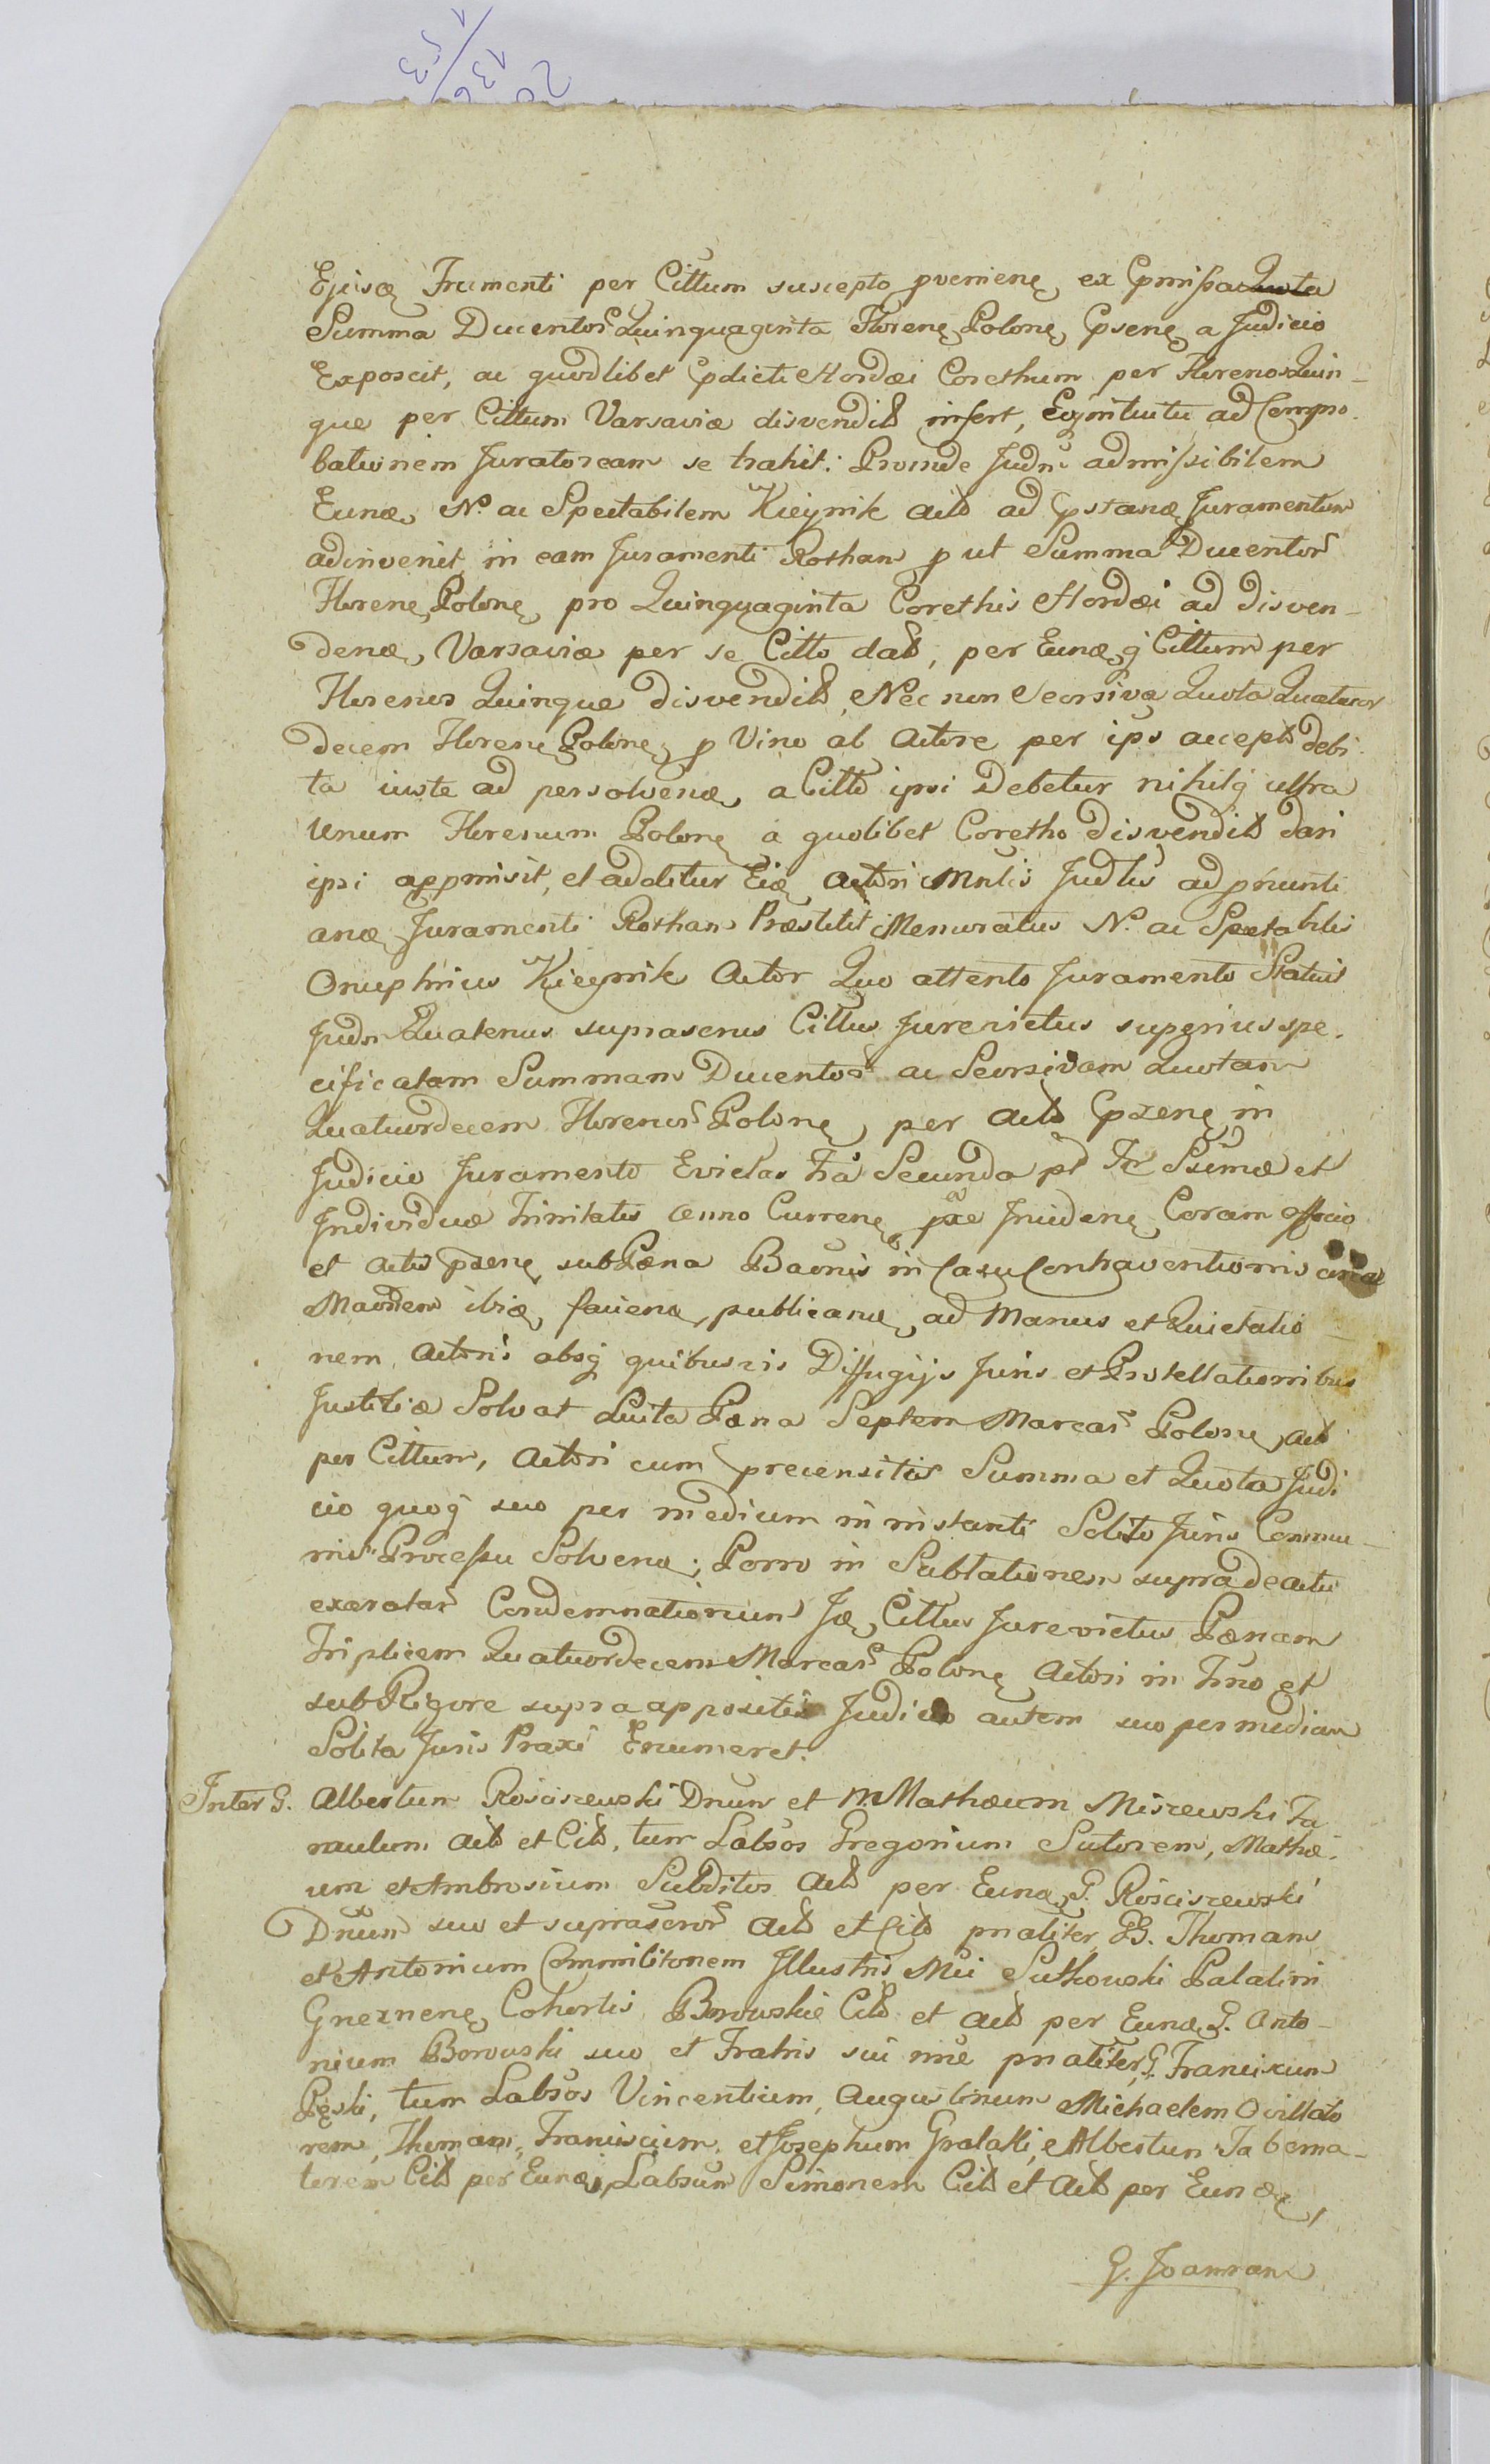 Ejusdę Frumenti per Cittum suscepto pvenienę ex Cpmissa Quota
Summa Ducentor Quinquaginta Florenę Polonę, Cpsenę a Judicio
Exposcit, ac quodlibet Cpdicti Hordæi Corethum per Florenos Quin-
que per Cittum Varsaviæ disvendit infert, ad Compro-
bationem Juratoream se trahit: Proinde Judm admissibilem
Eundę, N. ac Spectabilem Kieynik Actt ad Cpstandę Juramentum
adinvenit in eam Juramenti Rotham p ut Summa Ducentor
Florenę Polonę, pro Quinquaginta Corethis Hordæi ad disven-
dendę, Varsaviæ per se Citto datt, per Eundę q Cittum per
Florenos Quinque disvendit, Nec non Seorsiva Quota Quatuor
decem Florenę Polonę, p Vino ab Actore per ipso accept debi-
ta iuste ad persolvendę, a Citto ipsi Debetur nihilq ultra
Unum Florenum Polonę a quolibet Coretho disvendit dari
ipsi appmisit, et additur Eię Actori Mnlis Judlis ad pnunti
andę Juramenti Rotham Præstitit Memoratus N. ac Spectabilis
Onuphrius Kieynik Actor Quo attento Juramento Statuit
Judm Quatenus suprascrus Cittus Jurevictus superius spe-
cificatam Summam Ducentor ac Seorsivam Quotam
Quatuordecem Florenor Polonę, per Actt Cpxenę in
Judicio Juramento Evictas Fra Secunda pt Fr Ssimæ et
Individuæ Trinitatis Anno Currenę pxe Incidenę Coram Officio
et Actis pzenę sub Pæna Baonis in Casu Contraventionis
ibię, faciendę, publicandę, ad Manus et Quietatio-
nem Actoris absq quibusvis Diffugijs Juris et Protellationibus
Justitiæ Solvat Luita Pæna Septem Marcar Polonę, Actt
per Cittum, Actori cum precensitis Summa et Quota Judi
cio quoq suo per medium in instanti Solito Juris Commu-
nis Processu Solvendę; Porro in Sublationem supra de actu
exaratar Condemnationum Ię, Cittus Jurevictus Pænam
Triplicem Quatuordecem Marcar Polonę Actori in Fno et
sub Rigore supra appositis Judicio autem suo per medium
Solita Juris Praxi Enumeret.
Inter G. Albertum Rosciszewski Dnum et M Mathæum Miszewski Fa
mulum Actt et Citt, tum Labsos Gregorium Sutorem, Mathæ-
um et Ambrosium Subditos Actt per Eundę G. Rosciszewski
Dnum suo et suprascror Actt et Citt pnaliter GG. Thomam
et Antonium Commilitonem Illustris Mci Sułkowski Palatini
Gneznenę Cohortis Borowskie Citt et Actt per Eundę G. Anto-
nium Borowski suo et Fratris sui nne pnaliter, G. Franciscum
Pęski, tum Labsos Vincentium, Augustinum Michaelem Ovillato
rem, Thomam, Franciscum, et Josephum Gralałki, Albertum Taberna-
torem Citt per Eundę, Labsum Simonem Citt et Actt per Eundę,
G. Joannem